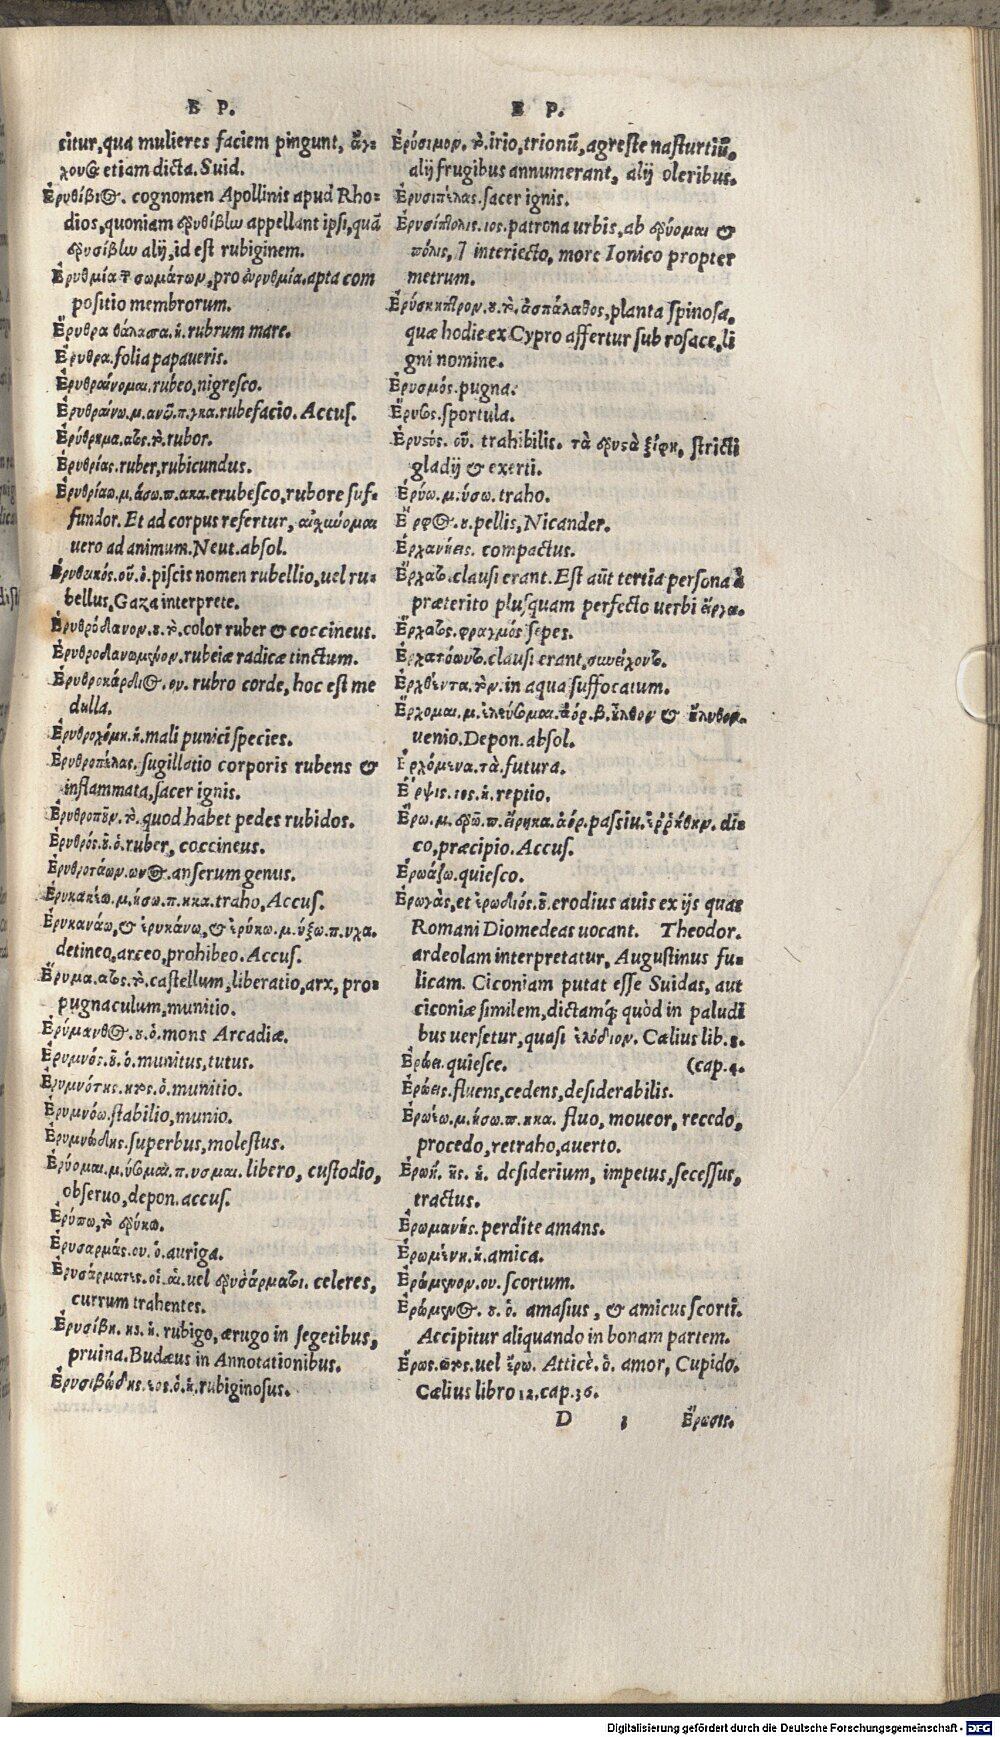 Ε Ρ.
citur, qua mulieres faciem pingunt, ἄγ-
χουσα etiam dicta. Suid.
Ἐρυθίβιος. cognomen Apollinis apud Rho-
dios, quoniam ἐρυθίβlω appellant ipsi, quā
ἐρυσίβlω alij, id est rubiginem.
Ἐρυθμία τ̄ σωμάτων, pro εὐρυθμία. apta com
positio membrorum.
Ἔρυθρα θάλασσα. ἡ. rubrum mare.
Ἔρυθρα. folia papaueris.
Ἐρυθραίνομαι. rubeo, nigresco.
Ἐρυθραίνω. μ. ανῶ. π. γκα. rubefacio. Accus.
Ἐρύθρημα. ατος. τὸ. rubor.
Ἐρυθρίας. ruber, rubicundus.
Ἐρυθριάω. μ. άσω. π. ακα. erubesco, rubore suf-
fundor. Et ad corpus refertur, αἰσχύομαι
uero ad animum. Neut. absol.
Ἐρυθακός. οῦ. ὁ. piscis nomen rubellio, uel ru-
bellus, Gaza interprete.
Ἐρυθρόδανον. ου. τὸ. color ruber & coccineus.
Ἐρυθροδανωμένον. rubeiæ radicæ tinctum.
Ἐρυθροκάρδιος. ου. rubro corde, hoc est me
dulla.
Ἐρυθροχόμη. ἡ. mali punici species.
Ἐρυθροπέλας. sugillatio corporis rubens &
inflammata, sacer ignis.
Ἐρυθροποῦν. τὸ. quod habet pedes rubidos.
Ἐρυθρός. οῦ. ὁ. ruber, coccineus.
Ἐρυθροτάων. ωνος. anserum genus.
Ἐρυκακέω. μ. ήσω. π. ηκα. traho, Accus.
Ἐρυκανάω, & ἐρυκάνω, & ἐρύκω. μ. ύξω. π. υχα.
detineo, arceo, prohibeo. Accus.
Ἔρυμα. ατος. τὸ. castellum, liberatio, arx, pro-
pugnaculum, munitio.
Ἐρύμανθος. ου. ὁ. mons Arcadiæ.
Ἐρυμνός. οῦ. ὁ. munitus, tutus.
Ἐρυμνότης. ητος. ὁ. munitio.
Ἐρυμνόω. stabilio, munio.
Ἐρυμνώδης. superbus, molestus.
Ἐρύομαι. μ. ύσομαι. π. υσμαι. libero, custodio,
obseruo, depon. accus.
Ἐρύπω, τὸ ἐρύκω.
Ἐρυσαρμάς. ου. ὁ. auriga.
Ἐρυσάρματες. οἱ. αἱ. uel ἐρυσάρματοι. celeres,
currum trahentes.
Ἐρυσίβη. ης. ἡ. rubigo, ærugo in segetibus,
pruina. Budæus in Annotationibus.
Ἐρυσιβώδης. εος. ὁ. ἡ. rubiginosus.
Ε Ρ.
Ἐρύσιμον. τὸ. irio, trionū, agreste nasturtiū,
alij frugibus annumerant, alij oleribus.
Ἐρυσιπέλας. sacer ignis.
Ἐρυσίπτολις. ιος. patrona urbis, ab ἐρύομαι &
πόλις, τ interiecto, more Ionico propter
metrum.
Ἐρύσκηπτρον. ου. τὸ. ἀσπάλαθος, planta spinosa,
quæ hodie ex Cypro affertur sub rosace, li
gni nomine.
Ἐρυσμός. pugna.
Ἔρυσος. sportula.
Ἐρυστός. οῦ. trahibilis. τὰ ἐρυστὰ ξίφη, stricti
gladij & exerti.
Ἐρύω. μ. ύσω. traho.
Ἔρφος. ου. pellis, Nicander.
Ἐρχανήεις. compactus.
Ἔρχατο. clausi erant. Est aūt tertia persona à
præterito plusquam perfecto uerbi ἔργα.
Ἔρχατος. φραγμός sepes.
Ἐρχατόωντο. clausi erant, συνείχοντο.
Ἐρχθέντα. τὸν. in aqua suffocatum.
Ἔρχομαι. μ. ἐλεύσομαι. ἀόρ. β. ἦλθον & ἤλυθον.
uenio. Depon. absol.
Ἐρχόμενα. τὰ. futura.
Ἕρψις. ιος. ἡ. reptio.
Ἔρω. μ. ἐρῶ. π. εἴρηκα. ἀόρ. passiu. ἐῤῥήθην. di-
co, præcipio. Accus.
Ἐρωάζω. quiesco.
Ἐρωγὰς, et ἐρωδιός. οῦ. erodius auis ex ijs quas
Romani Diomedeas uocant. Theodor.
ardeolam interpretatur, Augustinus fu-
licam. Ciconiam putat esse Suidas, aut
ciconiæ similem, dictamq; quòd in paludi
bus uersetur, quasi ἑλώδιον. Cælius lib. 8.
Ἐρώει. quiesce. (cap. 4.
Ἐρώεις. fluens, cedens, desiderabilis.
Ἐρωέω. μ. ήσω. π. ηκα. fluo, moueor, recedo,
procedo, retraho, auerto.
Ἐρωή. ῆς. ἡ. desiderium, impetus, secessus,
tractus.
Ἐρωμανής. perdite amans.
Ἐρωμένη. ἡ. amica.
Ἐρώμενον. ου. scortum.
Ἐρώμενος. ου. ὁ. amasius, & amicus scorti.
Accipitur aliquando in bonam partem.
Ἔρως. ωτος. uel ἔρω. Atticè. ὁ. amor, Cupido.
Cælius libro 12, cap. 36.
D 3 Ἔρωσις.
Digitalisierung gefördert durch die Deutsche Forschungsgemeinschaft - DFG